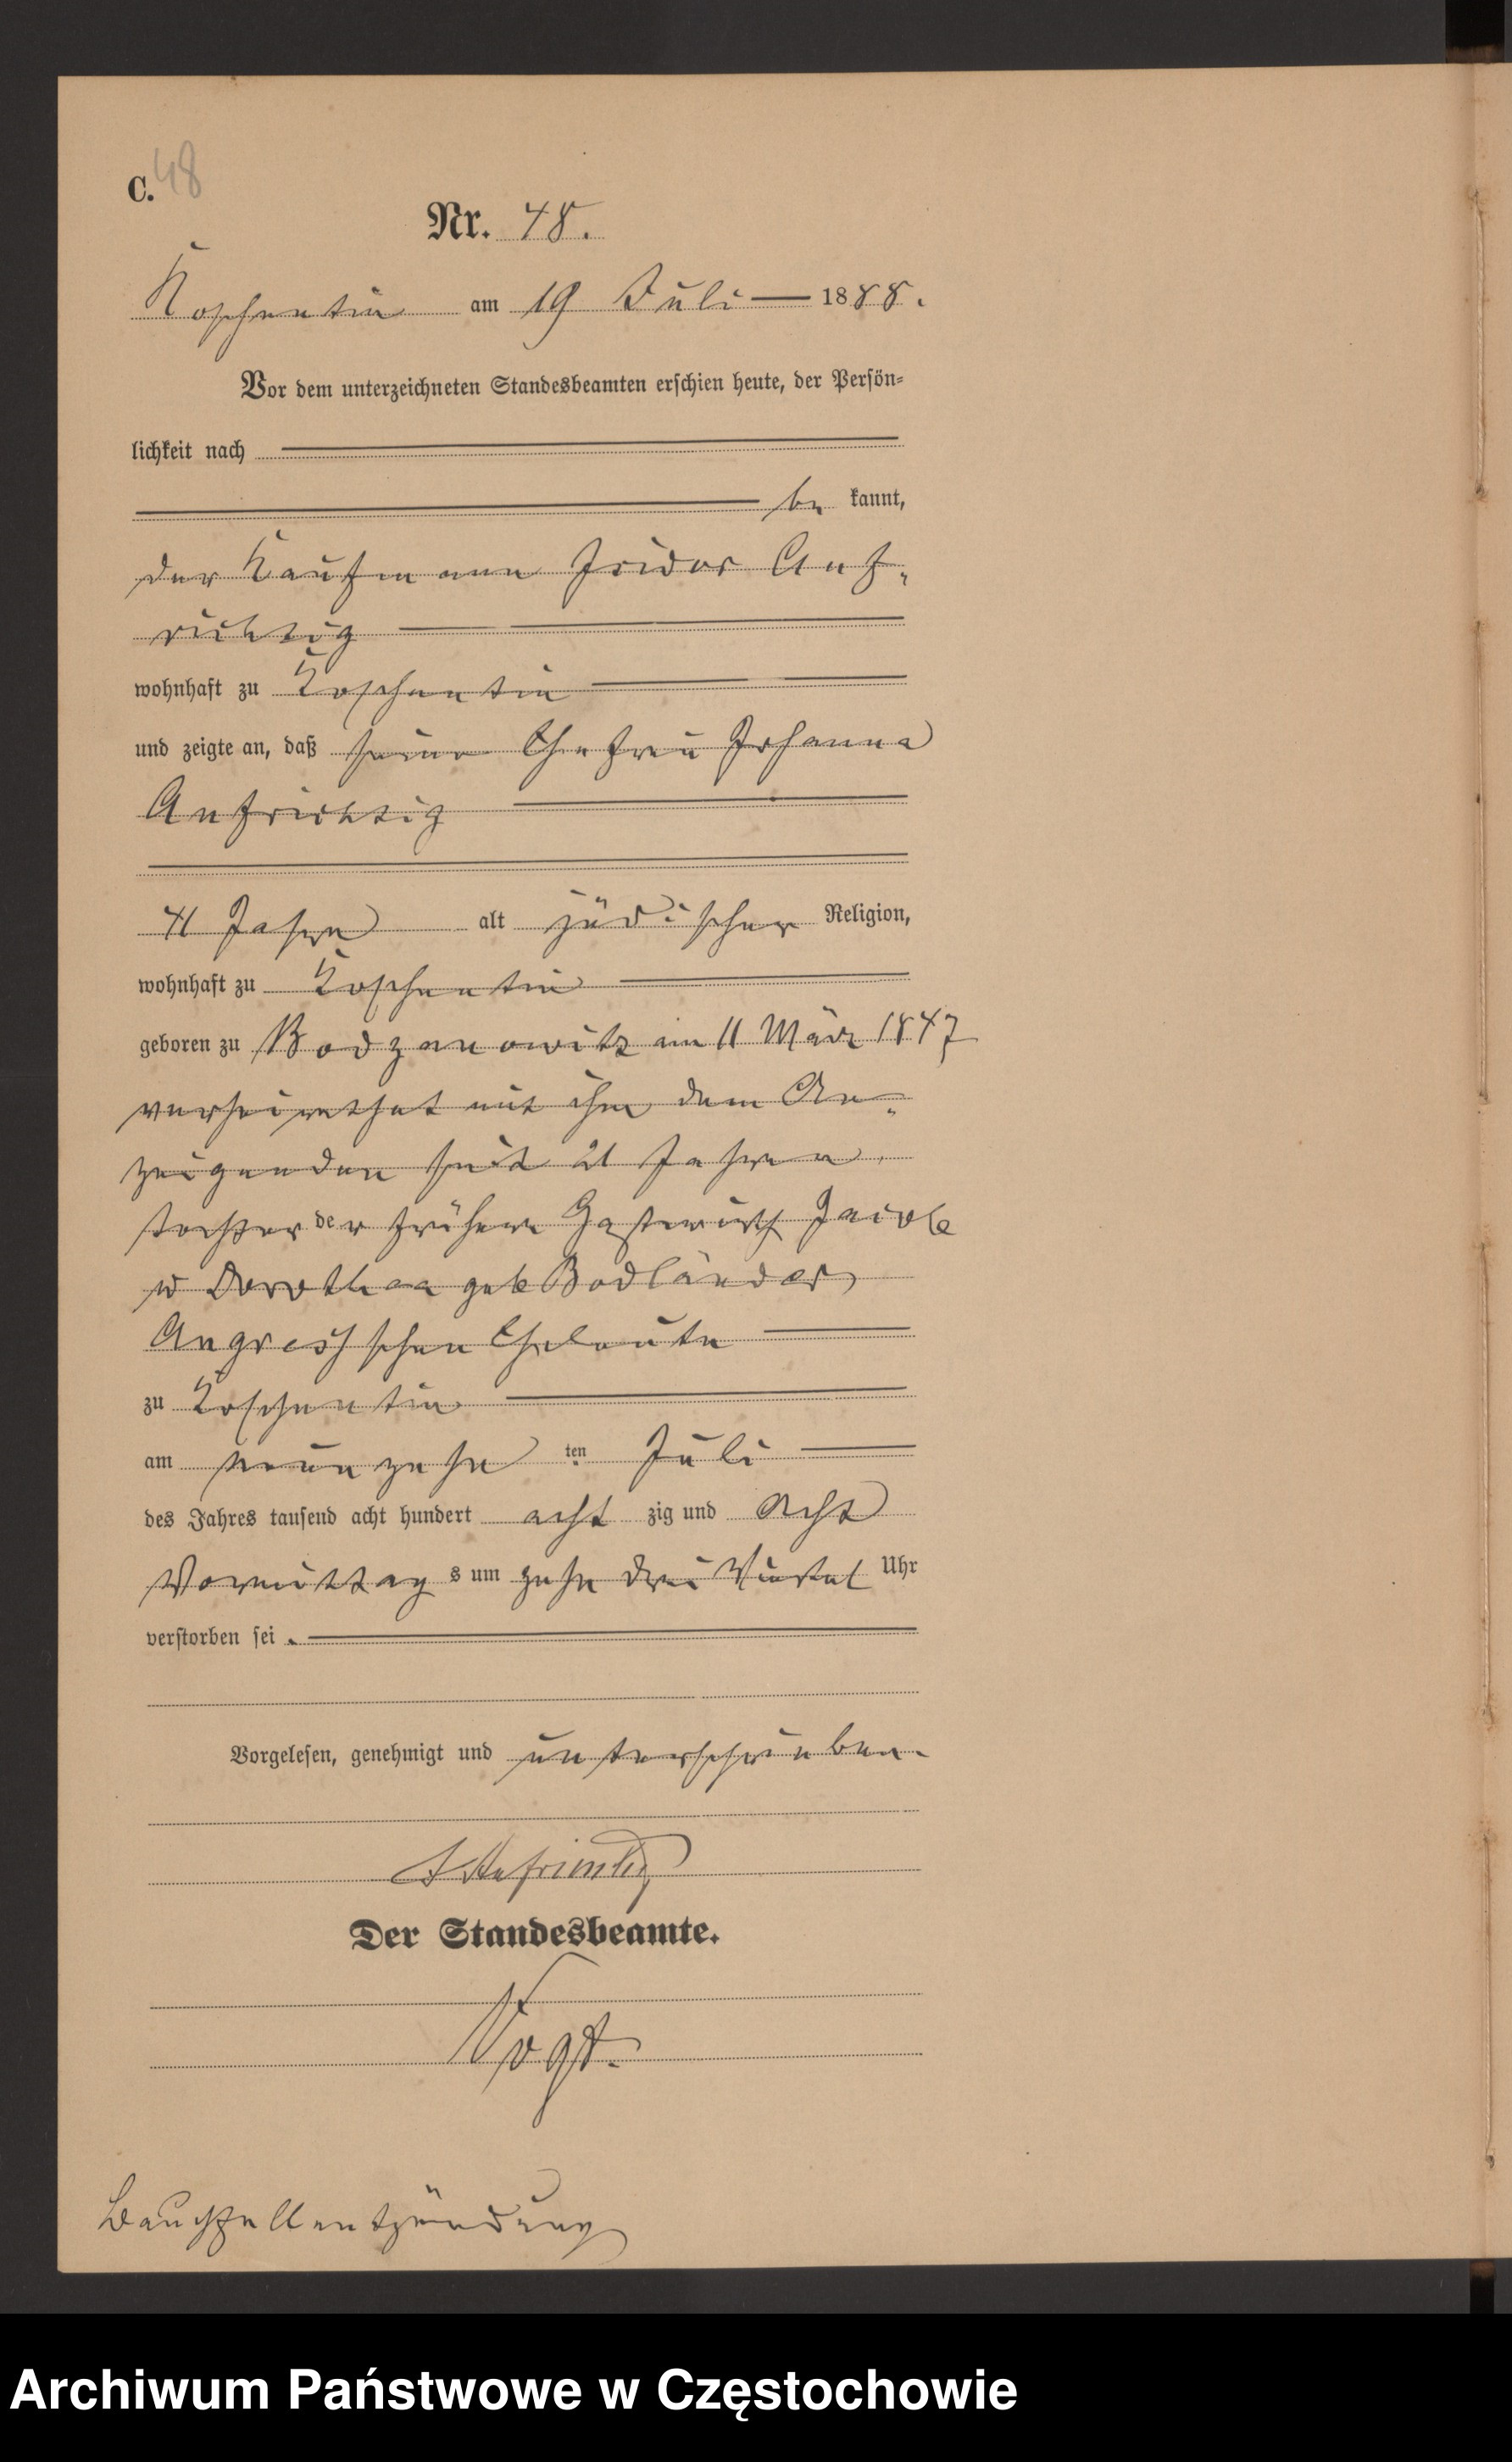 C. 48
Nr. 48.
Koschentin am 19 Juli 1888.
Vor dem unterzeichneten Standesbeamten erschien heute, der Persön-
lichkeit nach
be kannt,
der Kaufmann Isidor Auf-
richtig
wohnhaft zu Koschentin
und zeigte an, daß seine Ehefrau Johanna
Aufrichtig
41 Jahre alt jüdischer Religion,
wohnhaft zu Koschentin
geboren zu Bodzanowitz am 11 März 1847
verheirathet mit ihm dem An-
zeigenden seit 21 Jahren.
tochter der früheren Gastwirth Jacob
u Dorothea geb Bodländer
Angress schen Eheleute
zu Koschentin
am neunzehn ten Juli
des Jahres tausend acht hundert acht zig und acht
Vormittag s um zehn drei Viertel Uhr
verstorben sei.
Vorgelesen, genehmigt und unterschrieben.
I Aufrichtig
Der Standesbeamte.
Vogt.
Bauchfellentzündung
Archiwum Państwowe w Częstochowie